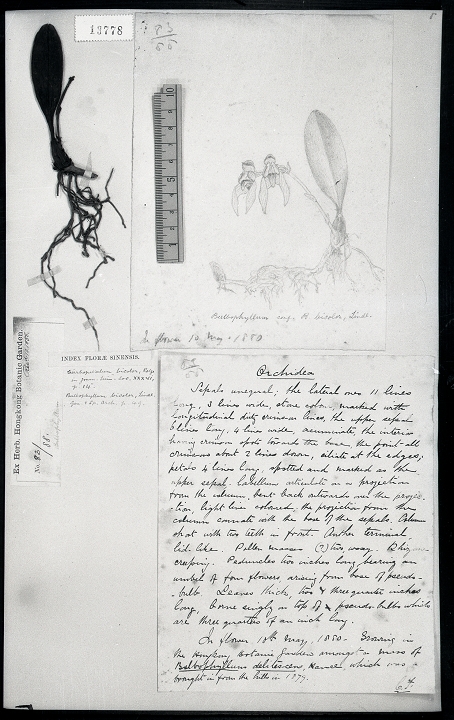 13778
83
66
10
5
1
Bulbophyllum B. bicolor, Lindl.
In flower 10 May 1880
Ex Herb. Hongkong Botanic Garden.
No. 83/
INDEX FLORÆ SINENSIS.
bicolor, Rolfe
in Journ. Linn. Soc. XXXVI,
Bulbophyllum bicolor, Lindl.
Orchidea
Sepals unequal; the lateral ones 11 lines
long, 3 lines wide, stone color, marked with
longitudinal duty crimson lines, the upper sepal
6 lines long, 4 lines wide, acuminate, the interior
having crimson spots towards the base, the point all
crimson about 2 lines down, ciliate at the edges;
petals 4 lines long, spotted and marked as the
upper sepal. Labellum articulate on a projection
from the column, bent back outwards over the projec-
-tion, light line colored, the projection from the
column connate with the base of the sepals. Column
short with two teeth in front. Anther terminal,
lid-like. Pollen masses (?) two, waxy. Rhizome
creeping. Peduncles two inches long bearing an
umbel of four flowers arising from base of pseudo-
-bulb. Leaves thick, two & three quarter inches
long, borne singly on top of pseudo-bulbs which
are three quarters of an inch long.
In flower 10th May, 1880. Growing in
the Hongkong Botanic Gardens amongst a mass of
Bulbophyllum delitescens, Hance, which was
brought in from the hills in 1879.
C.F.